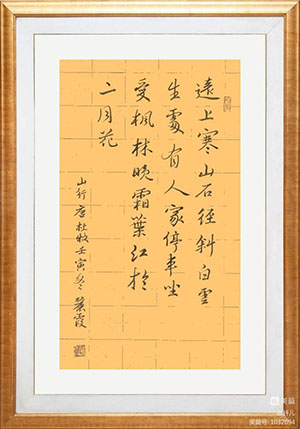 遠上寒山石徑斜白雲
生處有人家停車坐
愛楓林晚霜葉紅於
二月花
山行唐杜牧壬寅冬霞
美篇